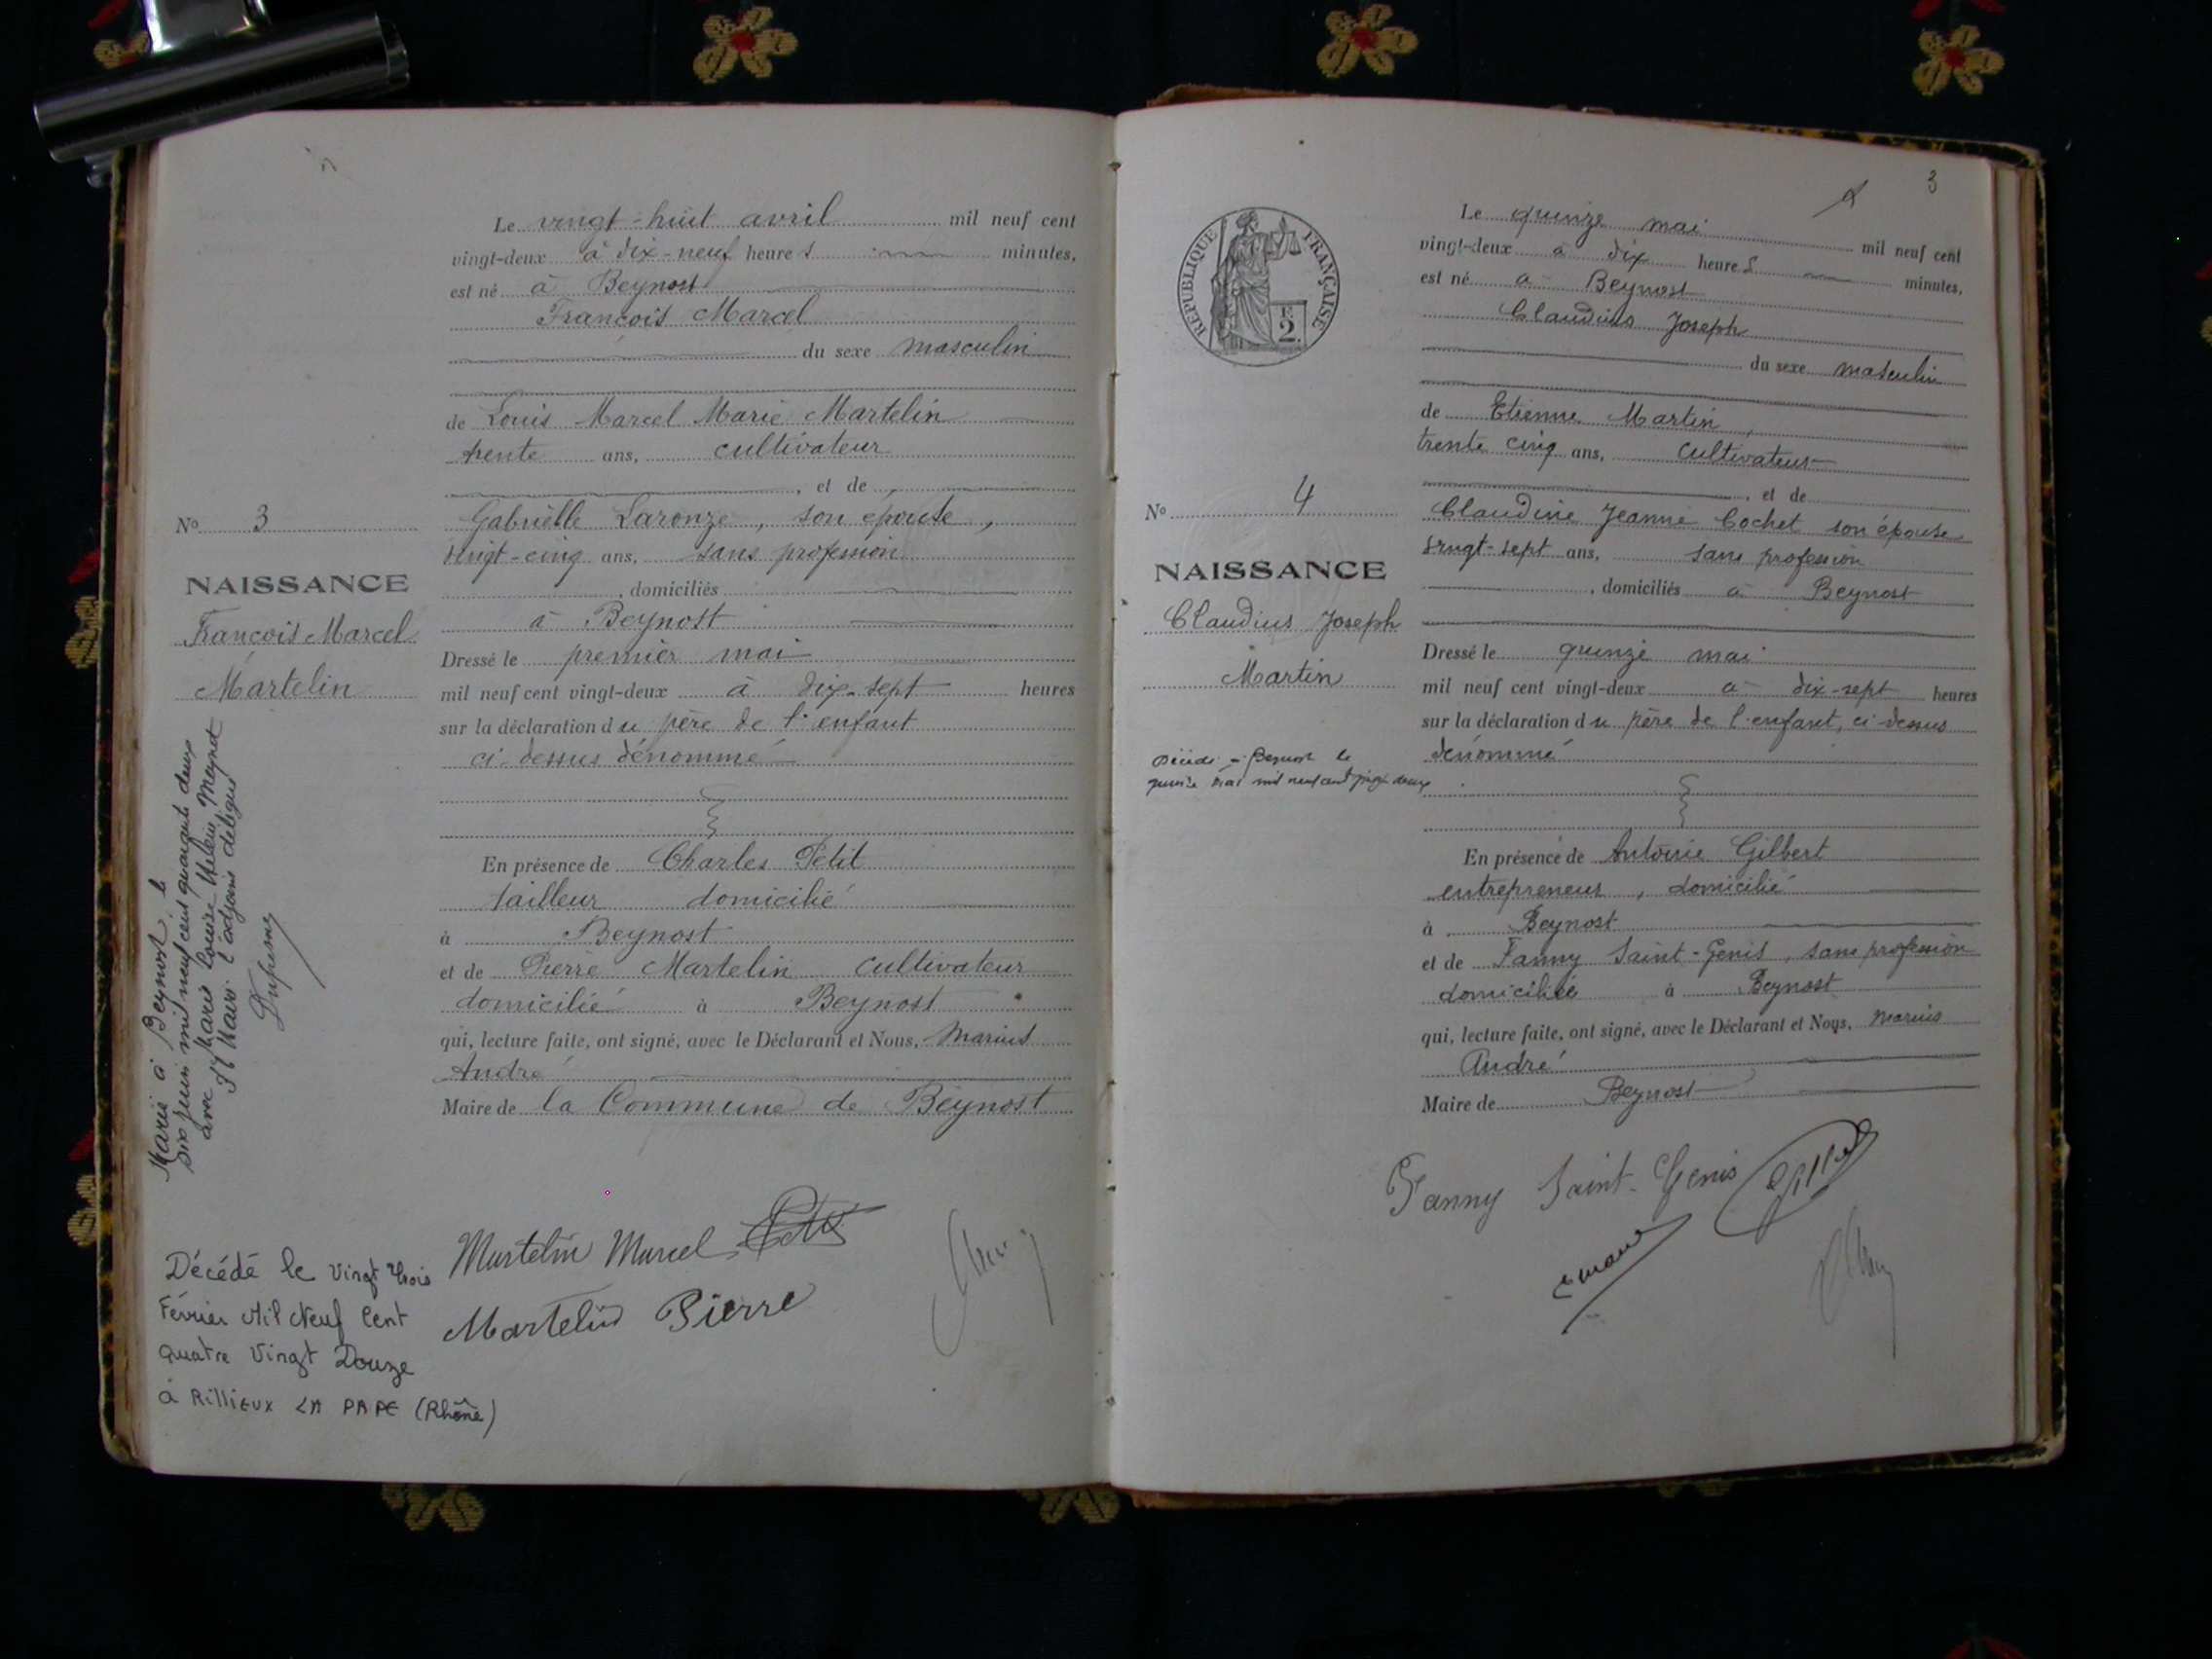 Le vingt-huit avril mil neuf cent
vingt-deux à dix-neuf heures minutes,
est né à Beynost
François Marcel
du sexe masculin
de Louis Marcel Marie Martelin
trente ans, cultivateur
, et de
Gabrielle Laronze, son épouse,
vingt-cinq ans, sans profession
, domiciliés
à Beynost
Dressé le premier mai
mil neuf cent vingt-deux à dix-sept heures
sur la déclaration du père de l'enfant
ci-dessus dénommé
En présence de Charles Petit
tailleur domicilié
à Beynost
et de Pierre Martelin cultivateur
domicilié à Beynost
qui, lecture faite, ont signé, avec le Déclarant et Nous, Marius
André
Maire de la Commune de Beynost
No 3
NAISSANCE
François Marcel
Martelin
Marié à Beynost le
six juin mil neuf cent quarante deux
avec Marie Louise Helène Meynet
Pr le Maire: l'adjoint délégué
Décédé le Vingt Trois
Février Mil Neuf Cent
quatre Vingt Douze
à RilliEUX LA PAPE (Rhône)
Martelin Marcel
Martelin Pierre
3
RÉPUBLIQUE FRANÇAISE
2
Le quinze mai mil neuf cent
vingt-deux à dix heures minutes,
est né à Beynost
Claudius Joseph
du sexe masculin
de Etienne Martin,
trente cinq ans, cultivateur
, et de
Claudine Jeanne Cochet son épouse
vingt-sept ans, sans profession
, domiciliés à Beynost
Dressé le quinze mai
mil neuf cent vingt-deux à dix-sept heures
sur la déclaration du père de l'enfant, ci-dessus
dénommé
En présence de Antoine Gilbert
entrepreneur, domicilié
à Beynost
et de Fanny Saint-Genis, sans profession
domiciliée à Beynost
qui, lecture faite, ont signé, avec le Déclarant et Nous, Marius
André
Maire de Beynost
No 4
NAISSANCE
Claudius Joseph
Martin
Décédé à Beynost le
quinze Mai mil neuf cent vingt deux
Fanny Saint-Genis